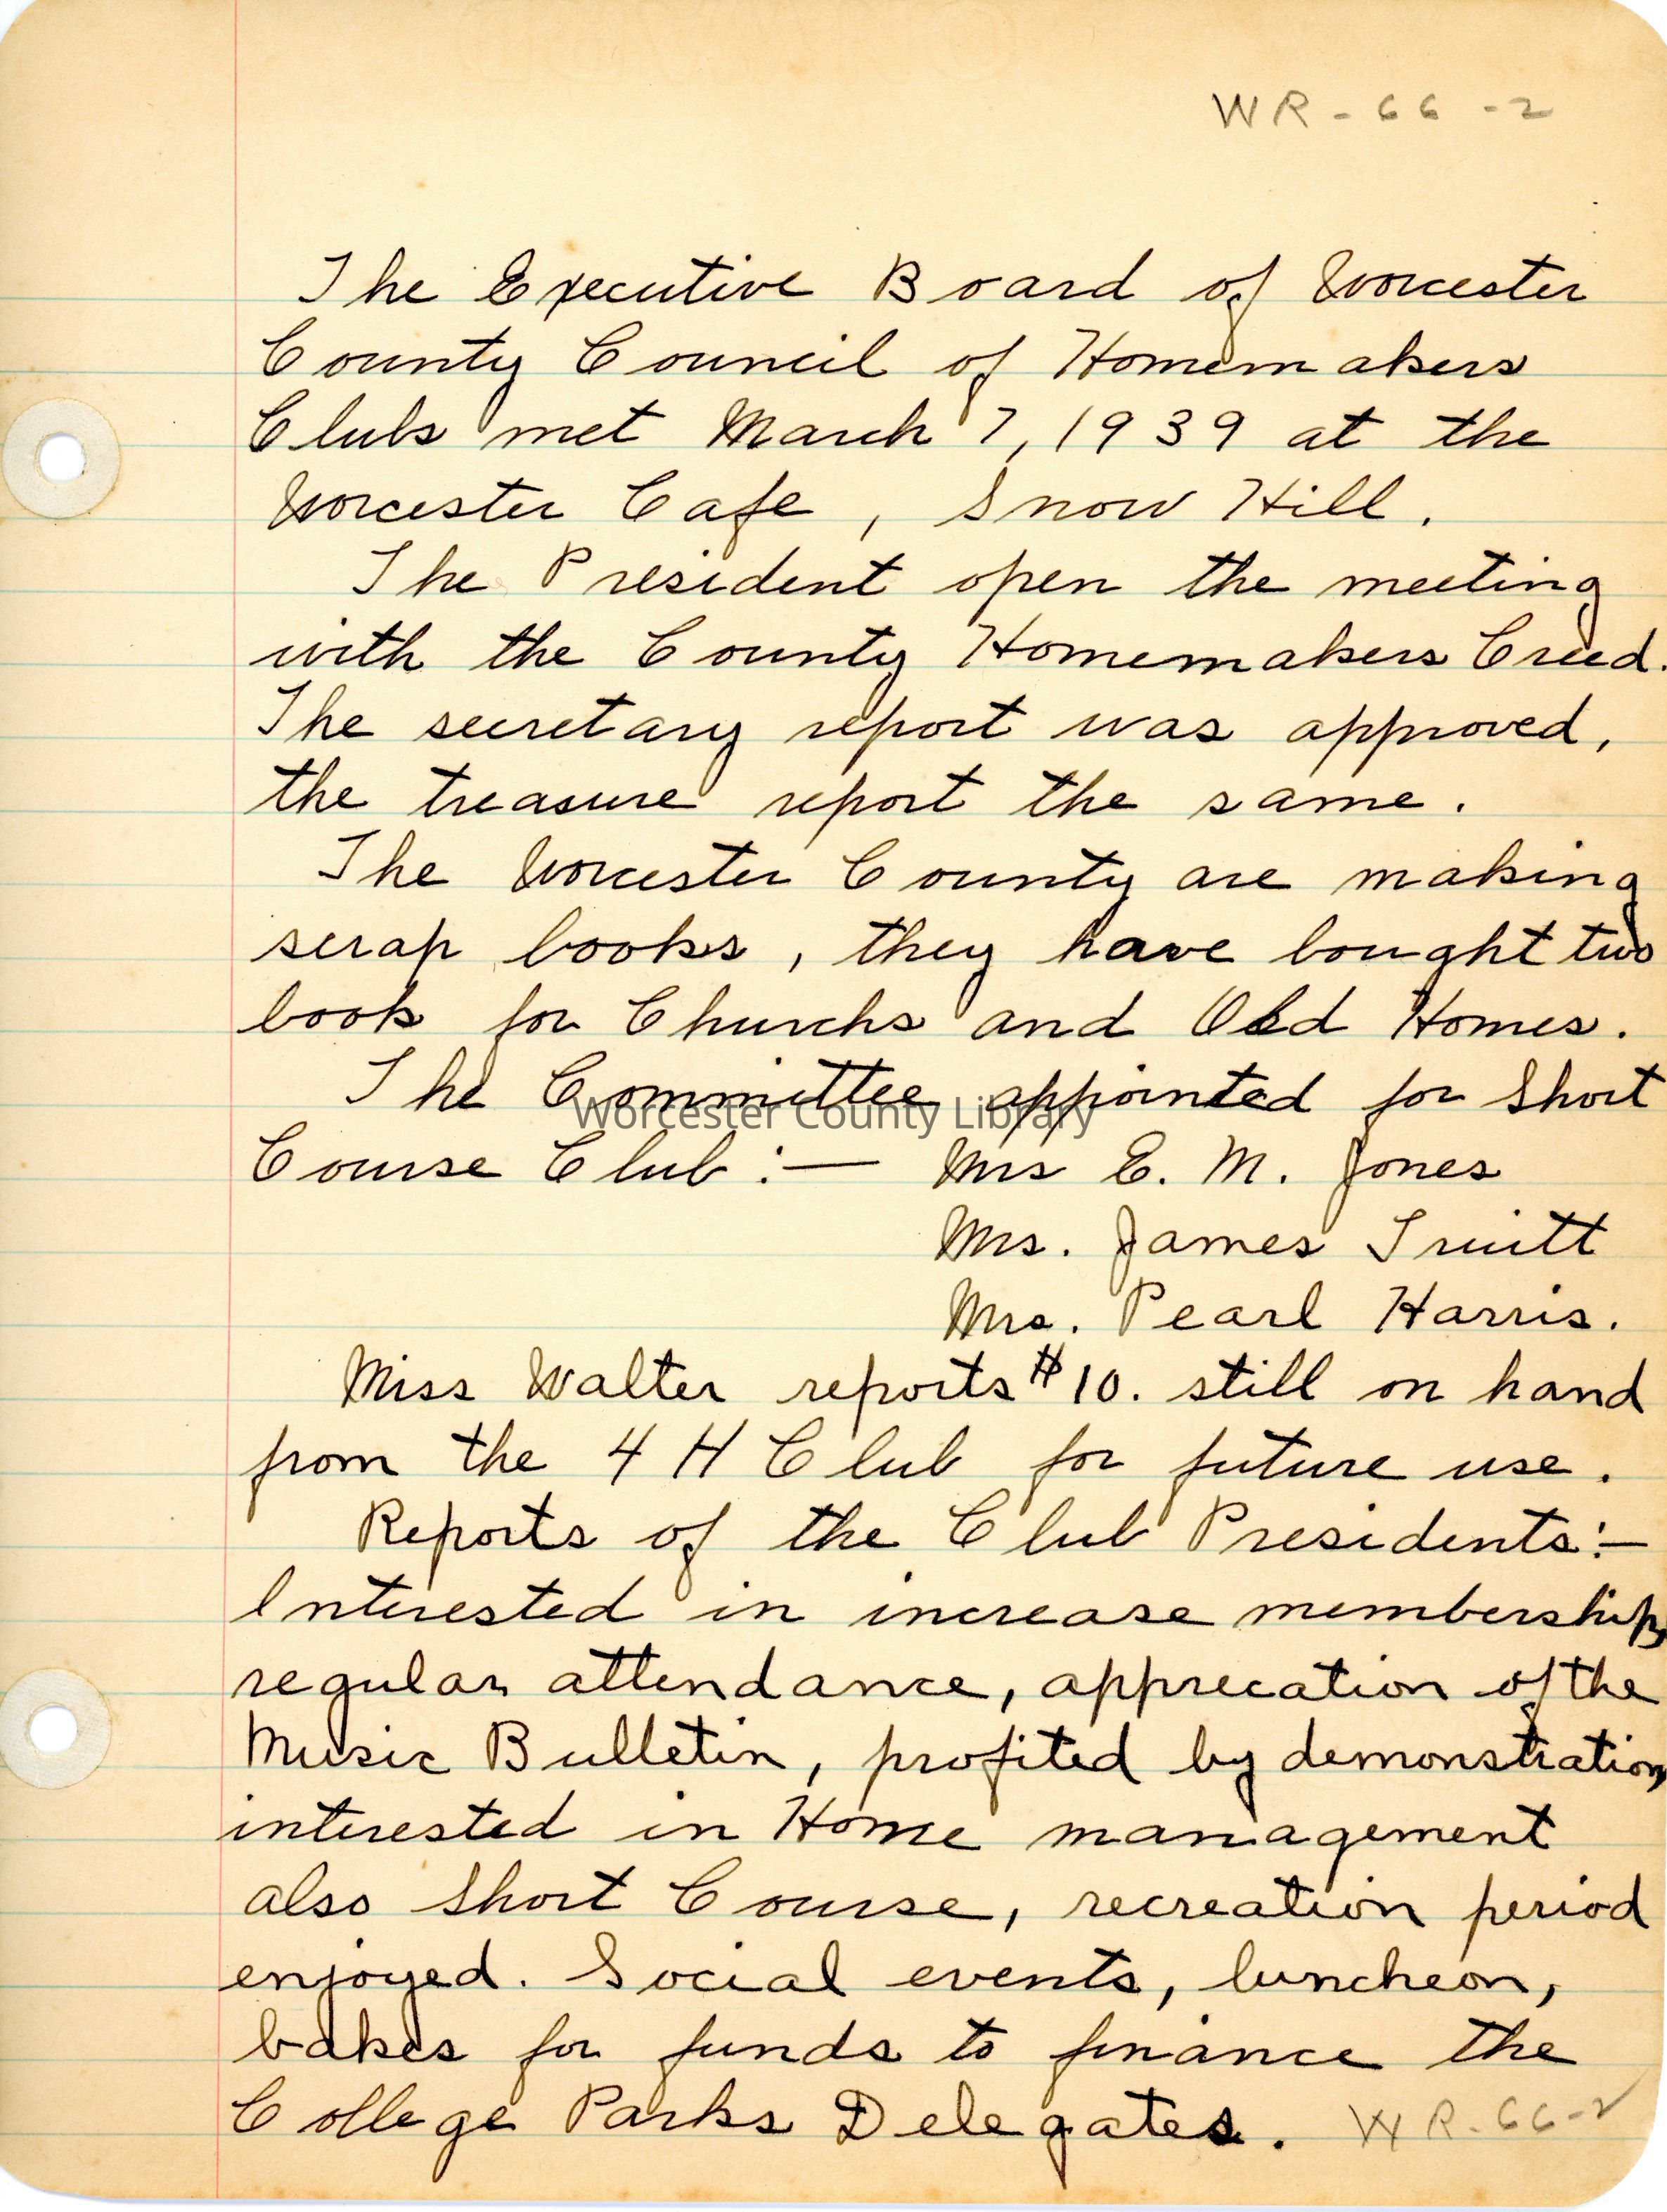 WR-66-2
The Executive Board of Worcester
County Council of Homemakers
Clubs met March 7, 1939 at the
Worcester Cafe, Snow Hill.
The President open the meeting
with the County Homemakers Creed.
The secretary report was approved,
the treasure report the same.
The Worcester County are making
scrap books, they have bought two
book for Churchs and Old Homes.
The Committee appointed for Short
Worcester County Library
Course Club:— Mrs E. M. Jones
Mrs. James Truitt
Mrs. Pearl Harris.
Miss Walter reports $10. still on hand
from the 4 H Club for future use.
Reports of the Club Presidents:—
Interested in increase membership,
regular attendance, apprecation of the
Music Bulletin, profited by demonstration,
interested in Home management
also Short Course, recreation period
enjoyed. Social events, luncheon,
bakes for funds to finance the
College Parks Delegates. WR-66-2